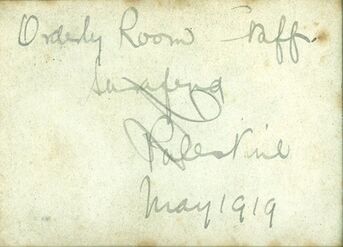 Orderly Room Staff.
Surafend
Palestine
May 1919